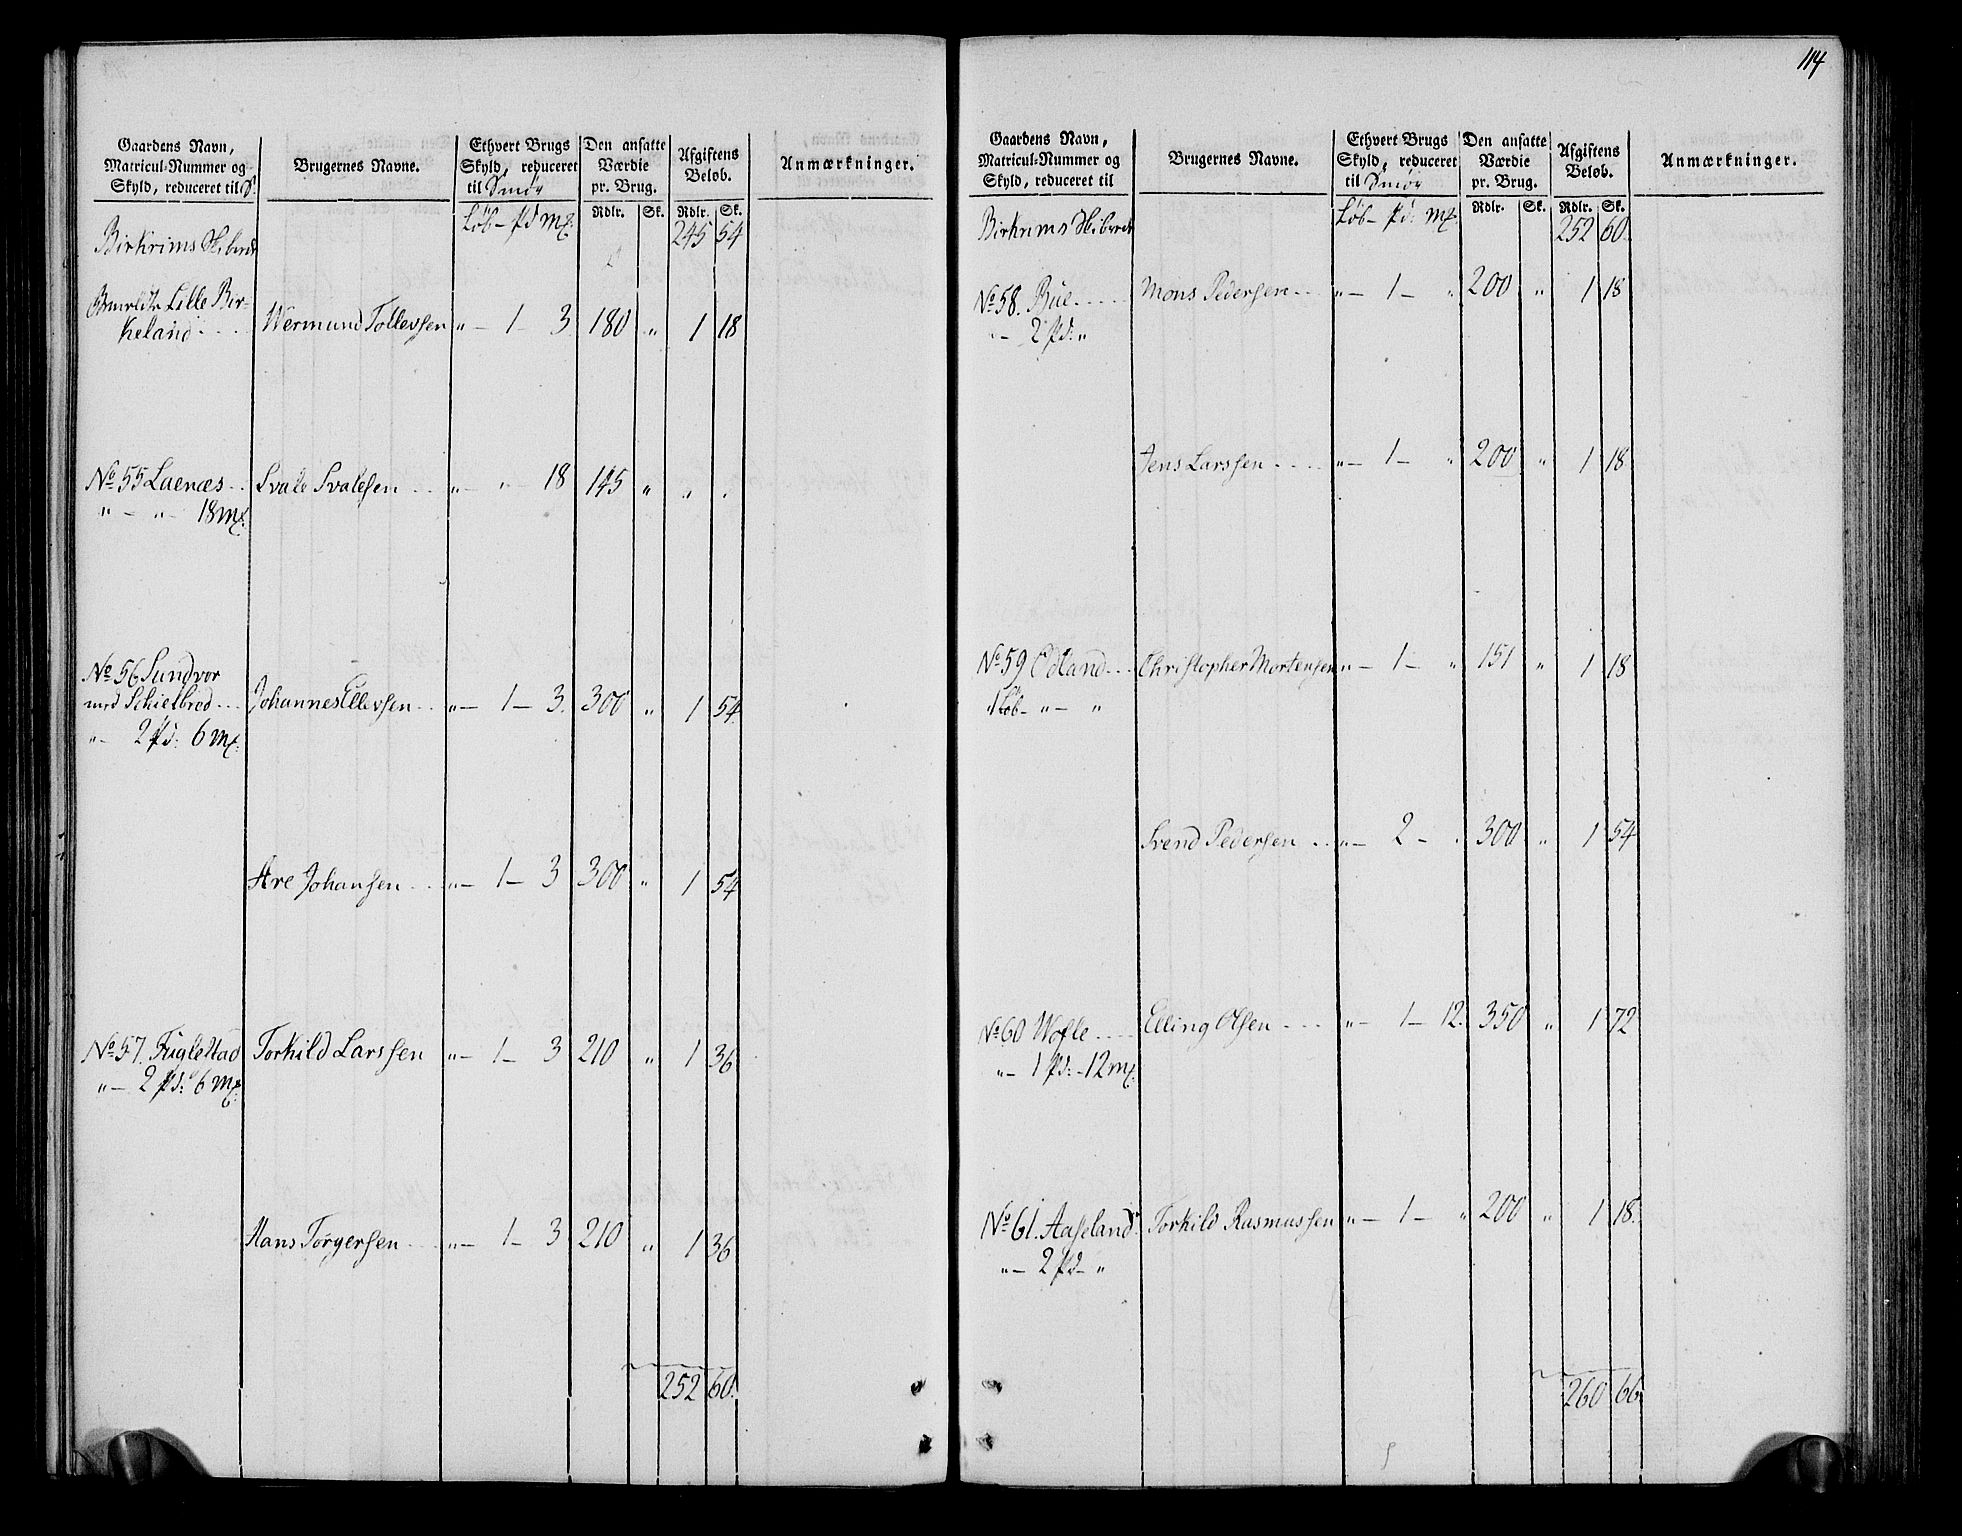 114
Gaardens Navn, Matricul-Nummer og Skyld, reduceret til S. | Brugernes Navne. | Ethvert Brugs Skyld, reduceret til Smør | Den ansatte Værdie pr. Brug. | Afgiftens Beløb. | Anmærkninger.
Løb – pd mk: | Rdlr. | Sk. | Rdlr. | Sk.
Birkrims Skibrede 245 54
Lille Bir-
keland . . . . Wermund Tollevsen „ – 1 – 3. 180 „ 1 18
No. 55 Laenæs . . Svale Svalesen . . „ – „ – 18 145 „ „ .
„ – „ – 18 mk.
No. 56 Sundvor
med Schielbred . . . Johannes Ellevsen . . „ – 1 – 3. 300 „ 1 54.
„ – 2 pd: 6 mk.
Are Johansen . . . „ – 1 – 3 300 „ 1 54
No. 57. Fuglestad Torkild Larssen „ – 1 – 3 210 „ 1 36
„ – 2 pd: 6 mk.
Hans Torgersen . . . „ – 1 – 3 210 „ 1 36
252 60.
Gaardens Navn, Matricul-Nummer og Skyld, reduceret til | Brugernes Navne. | Ethvert Brugs Skyld, reduceret til Smør | Den ansatte Værdie pr. Brug. | Afgiftens Beløb. | Anmærkninger.
Løb – pd: mk. | Rdlr. | Sk. | Rdlr. | Sk.
Birkrims Skibrede 252 60.
No. 58. Bue . . . . . Mons Pedersen . . . „ – 1 – „ 200 „ 1 18
„ – 2 pd: „
Jens Larssen . . . . „ – 1 – „ 200 „ 1 18
No. 59 Ødland . . . Christopher Mortensen „ – 1 – „ 151 „ 1 18
1 Løb – „ – „
Svend Pedersen . . . „ – 2 – „ 300 „ 1 54
No. 60 Wofle . . . . Elling Olsen . . . . „ – 1 – 12. 350 „ 1 72
„ – 1 pd: – 12 mk.
No. 61. Aaseland Torkild Rasmussen „ – 1 – „ 200 „ 1 18.
„ – 2 pd – „
260 66